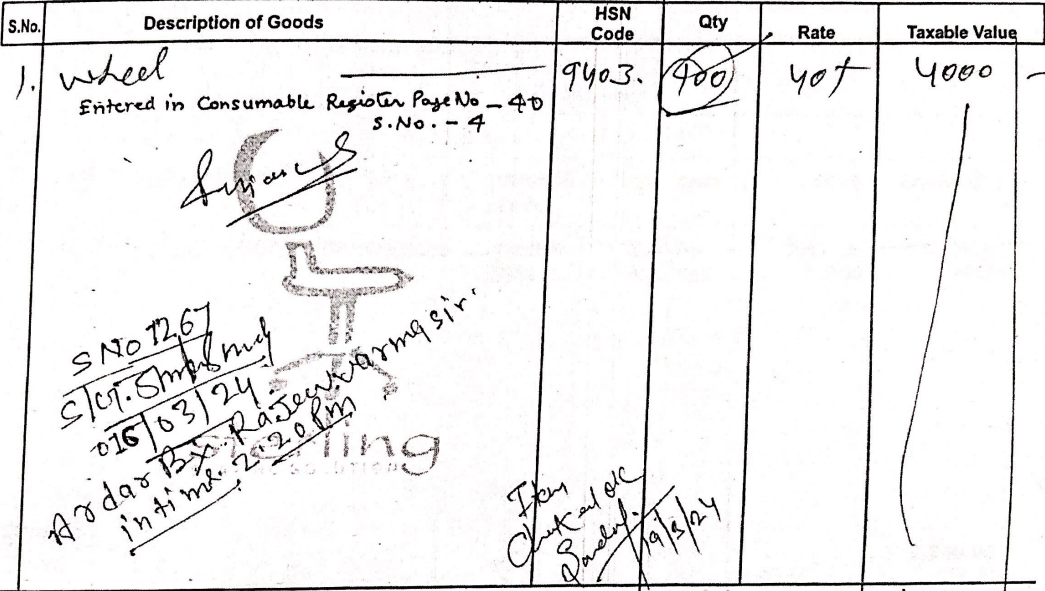 S.No. Description of Goods HSN Code Qty Rate Taxable Value
1. Wheel 9403. 400 40/ 4000
Entered in Consumable Register Page No - 40
S.No. - 4
S NO 1267
03/24.
Ardar By. Rajeev varma sir.
intime. 2.20 Pm
ling
Item
Checked OK
19/3/24